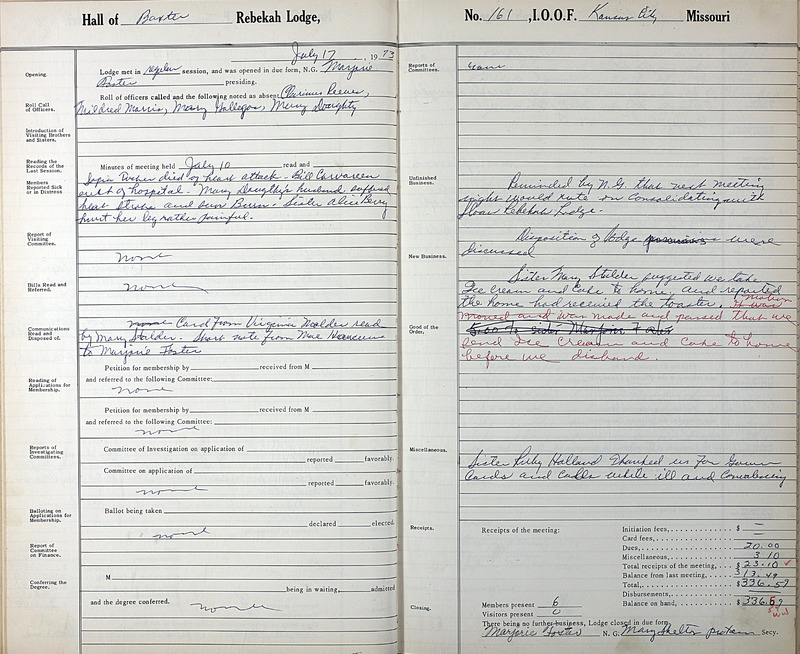 Hall of Baxter Rebekah Lodge,
July 17, 1973
Opening.
Lodge met in regular session, and was opened in due form, N.G. Marjorie
presiding.
Roll Call
of Officers.
Roll of officers called and the following noted as absent Reeves,
Mildred Morris, Mary Gallegos, Mary Doughty
Introduction of
Visiting Brothers
and Sisters.
Reading the
Records of the
Last Session.
Minutes of meeting held July 10 read and
Members
Reported Sick
or in Distress
died of heart attack. Bill
out of hospital. Mary Doughty's husband suffered
heat stroke and sun Burn. Sister Alice Berry
hurt her leg rather painful.
Report of
Visiting
Committee.
none
Bills Read and
Referred.
none
Communications
Read and
Disposed of.
none Card from Virginia read
by Mary Stalder. Short note from Mae
to Marjorie Foster
Petition for membership by received from M
Reading of
Applications for
Membership.
and referred to the following Committee:
none
Petition for membership by received from M
and referred to the following Committee:
none
Reports of
Investigating
Committees.
Committee of Investigation on application of
reported favorably.
Committee on application of
reported favorably.
none
Balloting on
Applications for
Membership.
Ballot being taken
declared elected.
none
Report of
Committee
on Finance.
Conferring the
Degree.
M
being in waiting, admitted
and the degree conferred.
none
No. 161, I.O.O.F. Kansas City Missouri
Reports of
Committees.
none
Unfinished
Business.
Reminded by N.G. that next meeting
night would vote on Consolidating with
Sloan Rebekah Lodge.
Disposition of lodge were
discussed
New Business.
Sister Mary Stalder suggested we take
Ice cream and Cake to home and reported
the home had received the toaster. It was motion
moved and was made and passed that we
Good of the
Order.
5.00 to sister
send Ice Cream and Cake to home
before we disband.
Miscellaneous.
Sister Ruby Holland thanked us for
Cards and calls while ill and
Receipts.
Receipts of the meeting:
Initiation fees, $ —
Card fees, —
Dues, 20.00
Miscellaneous, 3 10
Total receipts of the meeting, $ 23.10
Balance from last meeting, $ 313.49
Total, $336.59
Disbursements,
Balance on hand, $336.59
Closing.
Members present 6
Visitors present 0
There being no further business, Lodge closed in due form.
Marjorie Foster N. G. Mary Shelton protem Secy.